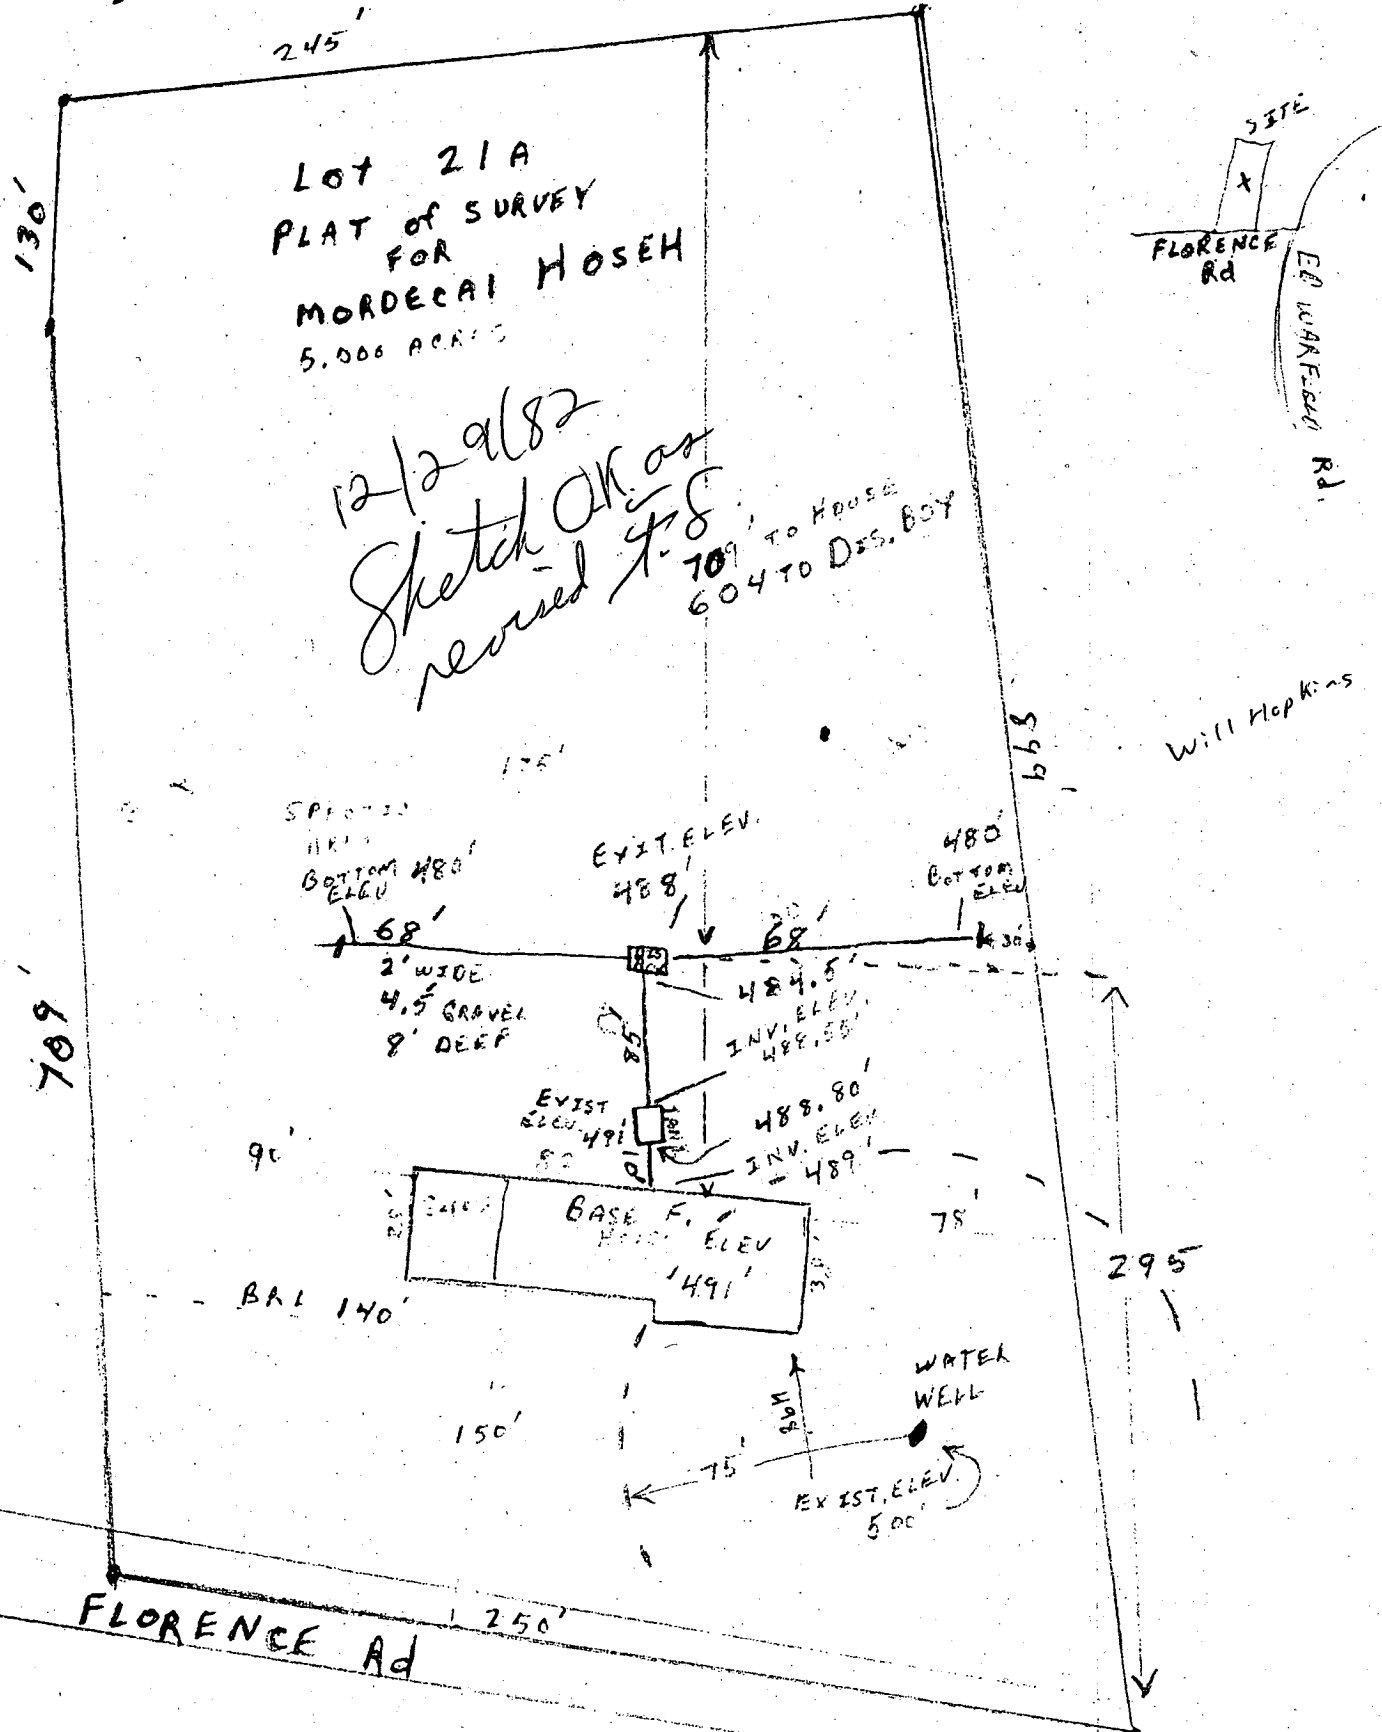 245'
130'
Lot 21A
PLAT of SURVEY
FOR
MORDECAI HOSEH
5.000 ACRES
SITE
X
FLORENCE
Rd
Rd.
12/29/82
Sketch OK as
revised
709' TO HOUSE
604 TO DIS. BOX
899
Will Hopkins
BOTTOM
ELEV 480'
EXIT. ELEV.
488'
480'
BOTTOM
ELEV
68'
68'
30'
2' WIDE
4.5' GRAVEL
8' DEEP
484.5'
INV. ELEV.
58
709'
EXIST
ELEV. 491'
TANK
10'
488.80'
INV. ELEV
489'
90'
BASE F.
ELEV
'491'
78'
295
BRL 140'
WATER
WELL
498
150'
75'
EXIST. ELEV.
500'
250'
FLORENCE Rd